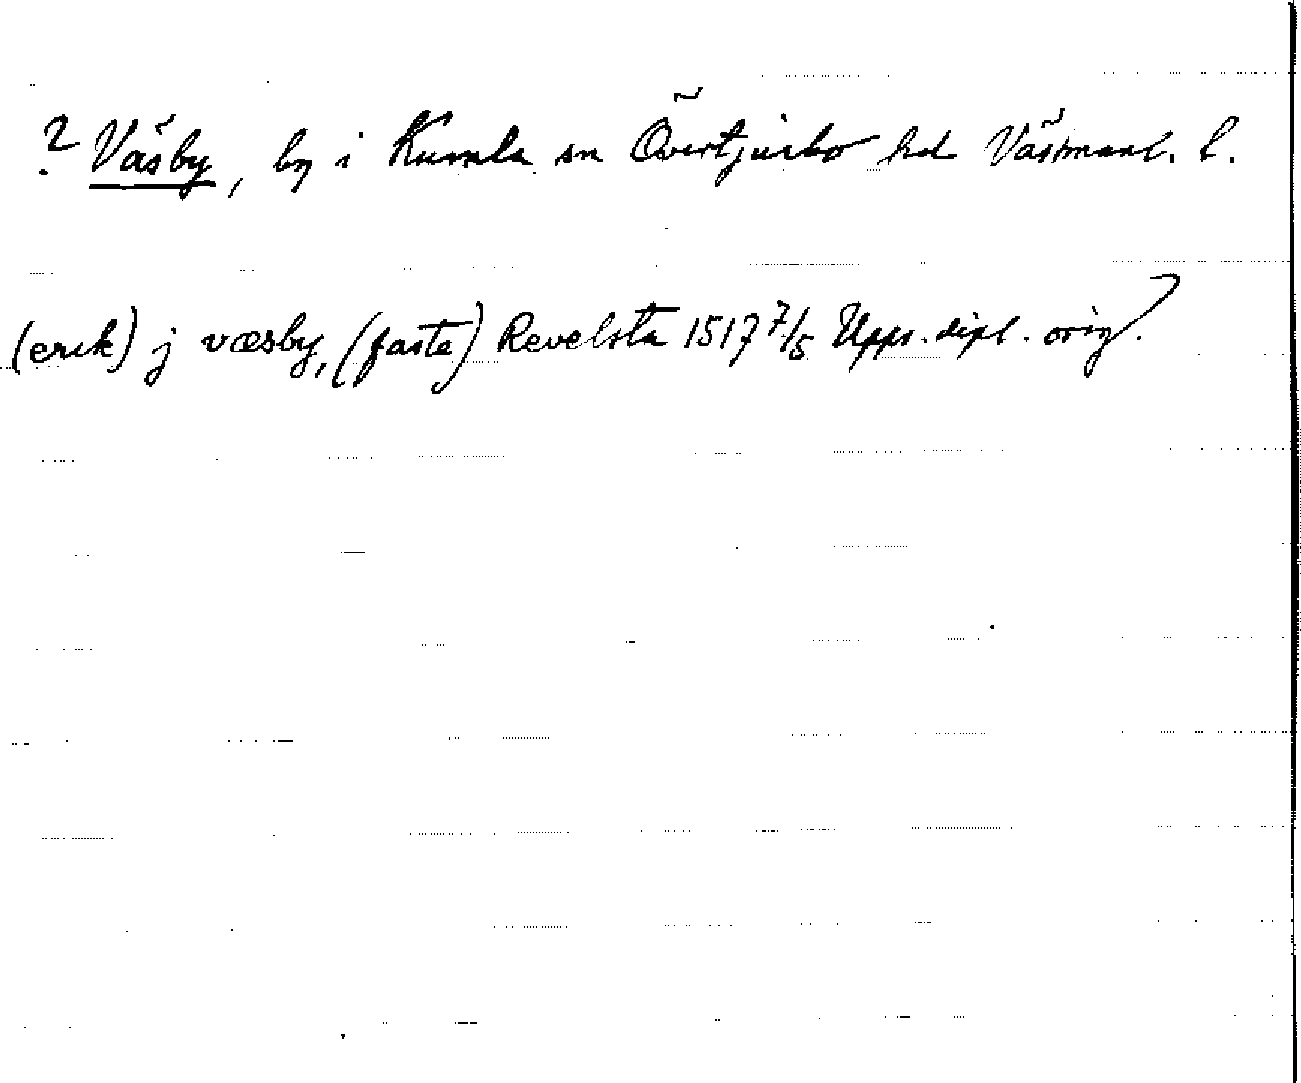 ? Väsby, by i Kumla sn Övertjurbo hd Västmanl. l.
(erik) j væsby, (fasta) Revelsta 1517 7/5 Upps. dipl. orig.